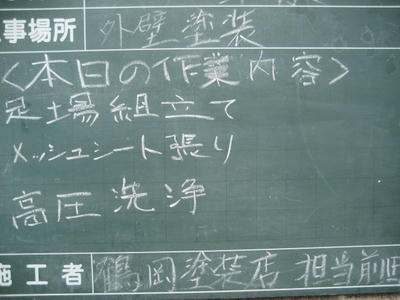 事場所 外壁塗装
<本日の作業内容>
足土場組立て
メッシュシート張り
高圧洗浄
施工者 鶴岡塗装店 担当前田